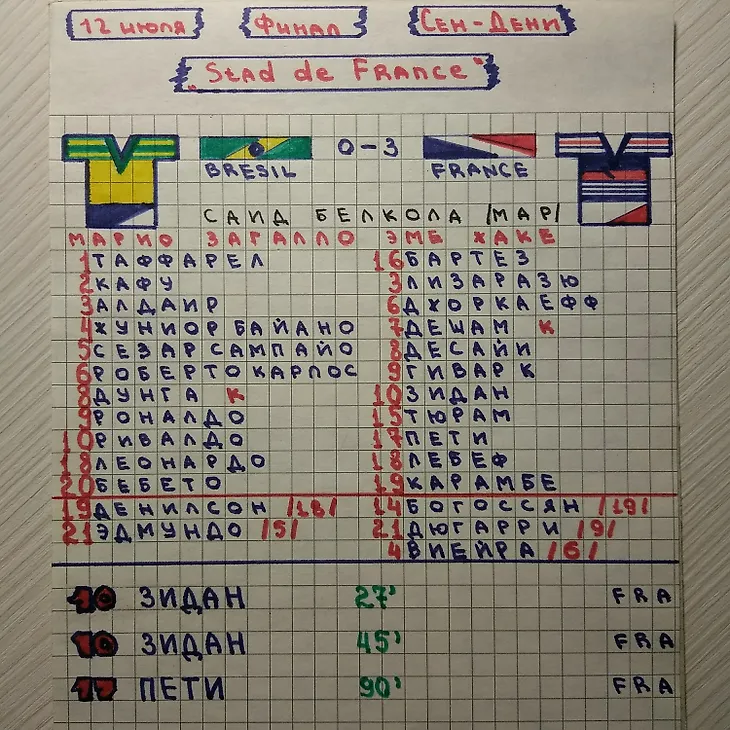 12 июля Финал Сен-Дени
"Stad de France"
0-3
BRESIL FRANCE
САИД БЕЛКОЛА /МАР/
МАРИО ЗАГАЛЛО ЭМЕ ЖАКЕ
1 ТАФФАРЕЛ 16 БАРТЕЗ
2 КАФУ 3 ЛИЗАРАЗЮ
3 АЛДАИР 6 ДЖОРКАЕФФ
4 ЖУНИОР БАЙАНО 7 ДЕШАМ К
5 СЕЗАР САМПАЙО 8 ДЕСАЙИ
6 РОБЕРТО КАРЛОС 9 ГИВАРК
8 ДУНГА К 10 ЗИДАН
9 РОНАЛДО 15 ТЮРАМ
10 РИВАЛДО 17 ПЕТИ
18 ЛЕОНАРДО 18 ЛЕБЕФ
20 БЕБЕТО 19 КАРАМБЕ
19 ДЕНИЛСОН /18/ 14 БОГОССЯН /19/
21 ЭДМУНДО /5/ 21 ДЮГАРРИ /9/
4 ВИЕЙРА /6/
10 ЗИДАН 27' FRA
10 ЗИДАН 45' FRA
17 ПЕТИ 90' FRA